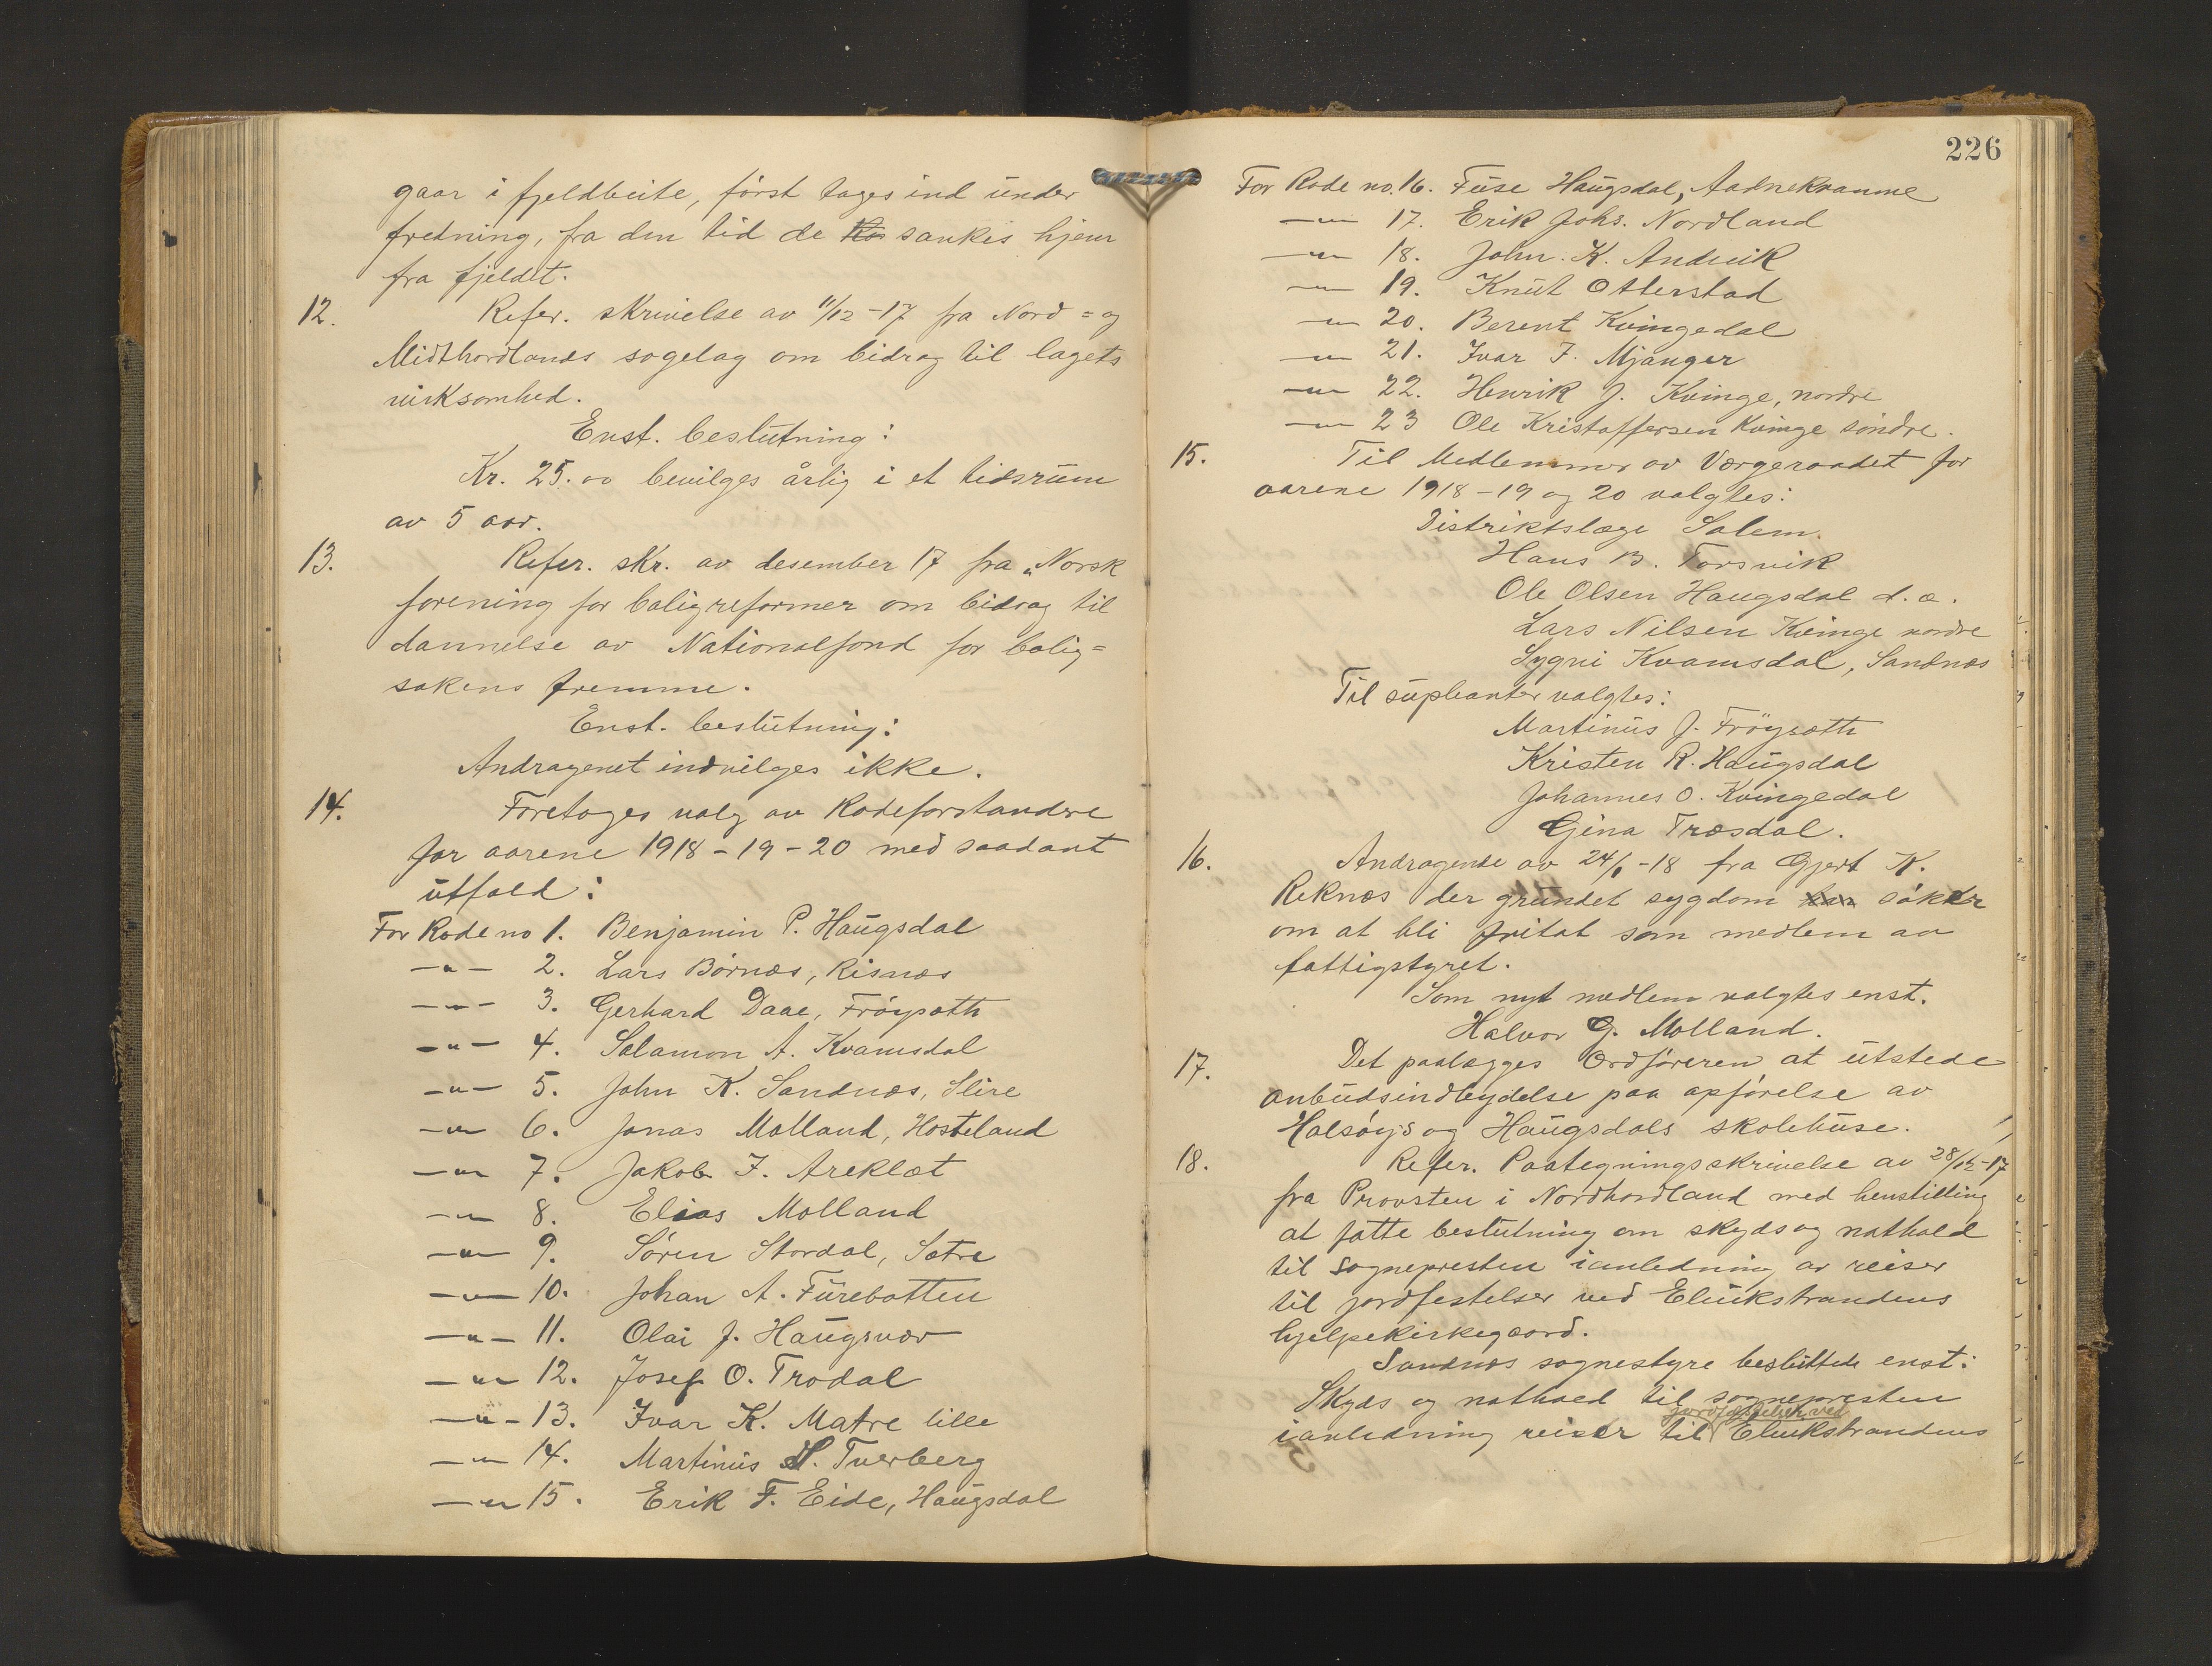 gaar i fjeldbeite, først tages ind under
fredning, fra den tid de sankes hjem
fra fjeldet.
12. Refer. skrivelse av 11/12-17 fra Nord= og
Midthordlands sogelag om bidrag til lagets
virksomhed.
Enst. beslutning:
Kr. 25.00 bevilges årlig i et tidsrum
av 5 aar.
13. Refer. skr. av desember 17 fra „Norsk
forening for boligreformer om bidrag til
dannelse av Nationalfond for bolig=
sakens fremme.
Enst. beslutning:
Andragenet indvilges ikke.
14. Foretages valg av Rodeforstandere
for aarene 1918-19-20 med saadant
utfald:
For Rode no 1. Benjamin P. Haugsdal
-"- 2. Lars Børnes, Risnes
-"- 3. Gerhard Daae, Frøysæth
-"- 4. Salamon A. Kvamsdal
-"- 5. John K. Sandnæs, Slire
-"- 6. Jonas Molland, Hosteland
-"- 7. Jakob I. Areklæt
-"- 8. Elias Molland
-"- 9. Søren Stordal, Sætre
-"- 10. Johan A. Furebotten
-"- 11. Olai J. Haugsvær
-"- 12. Josef O. Trodal
-"- 13. Ivar K. Matre lille
-"- 14. Martinus H. Tverberg
-"- 15. Erik F. Eide, Haugsdal
226
For Rode no. 16. Fuse Haugsdal, Aadnekvamme
-"- 17. Erik Johs. Nordland
-"- 18. John. K. Andvik
-"- 19. Knut Otterstad
-"- 20. Berent Kvingedal
-"- 21. Ivar I. Mjanger
-"- 22. Henrik J. Kvinge, nordre
-"- 23 Ole Kristoffersen Kvinge søndre.
15. Til Medlemmer av Værgeraadet for
aarene 1918-19 og 20 valgtes:
Distriktslæge Salem.
Hans B. Torsvik
Ole Olsen Haugsdal d.æ.
Lars Nilsen Kvinge nordre
Sygni Kvamsdal, Sandnæs
Til supleanter valgtes:
Martinus J. Frøysæth
Kristen R. Haugsdal
Johannes O. Kvingedal
Gjina Træsdal.
16. Andragende av 24/1-18 fra Gjert K.
Reknæs der grundet sygdom søker
om at bli fritat som medlem av
fattigstyret.
Som nyt medlem valgtes enst.
Halvor G. Molland.
17. Det paalægges Ordføreren at utstede
anbudsindbydelse paa opførelse av
Halsøys og Haugsdals skolehuse.
18. Refer. Paategningsskrivelse av 28/12-17
fra Provsten i Nordhordland med henstilling
at fatte beslutning om skyds og nathold
til sognepresten ianledning av reiser
til jordfestelser ved Elvikstrandens
hjelpekirkegaard.
Sandnæs sognestyre besluttede enst:
Skyds og nathold til sognepresten
ianledning reiser til jordfestelser ved Elvikstrandens